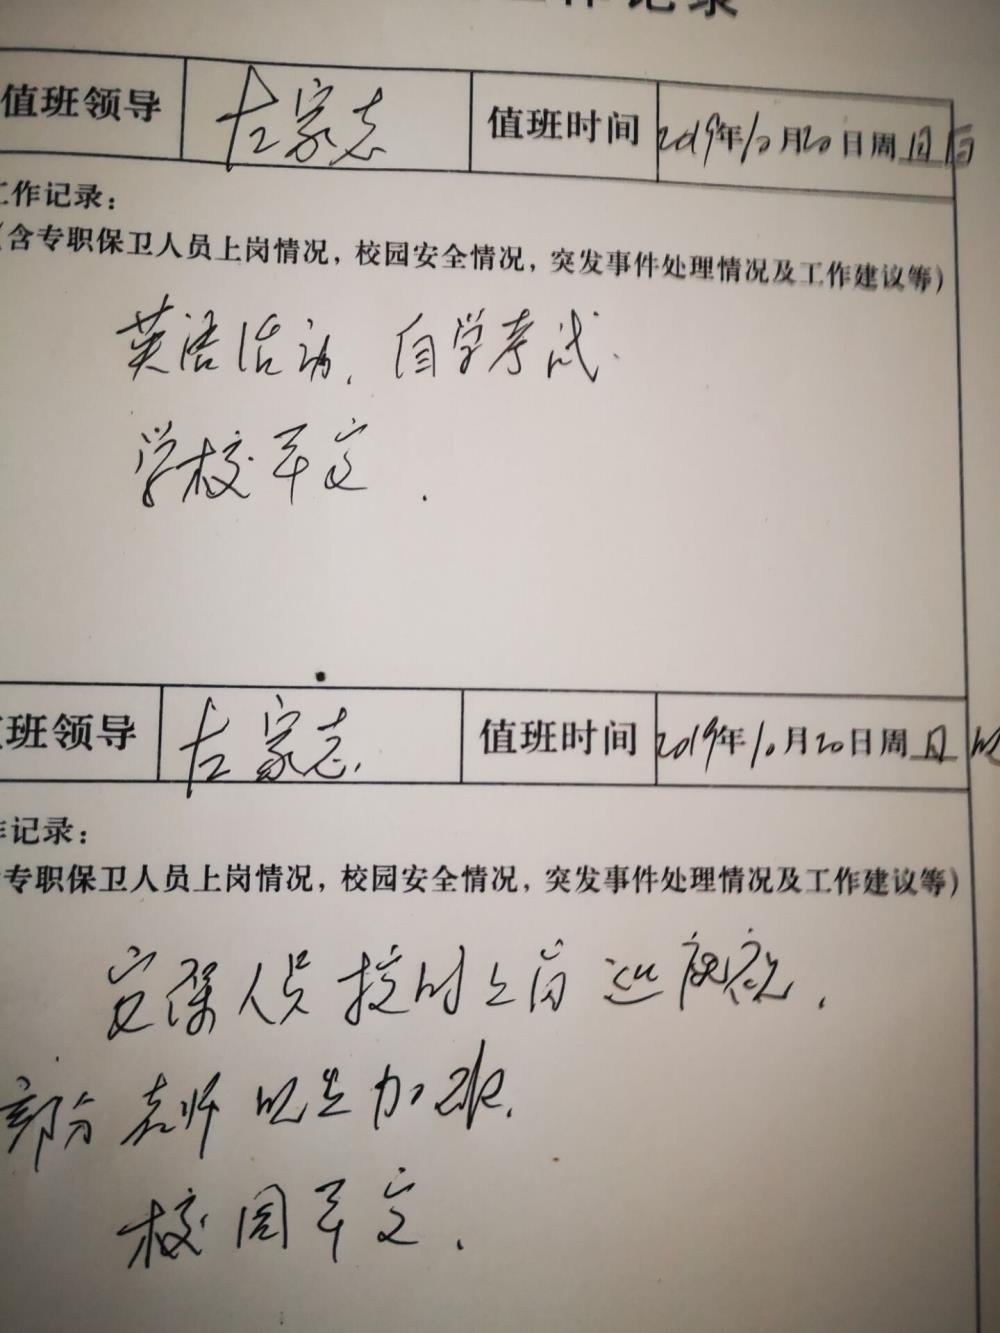 工作记录
值班领导 左家志 值班时间 2019年10月20日周日
工作记录：
（含专职保卫人员上岗情况，校园安全情况，突发事件处理情况及工作建议等）
英语活动、自学考试.
学校平安.
值班领导 左家志 值班时间 2019年10月20日周日 晚
作记录：
专职保卫人员上岗情况，校园安全情况，突发事件处理情况及工作建议等）
安保人员按时上岗巡夜.
部分老师晚上加班.
校园平安.